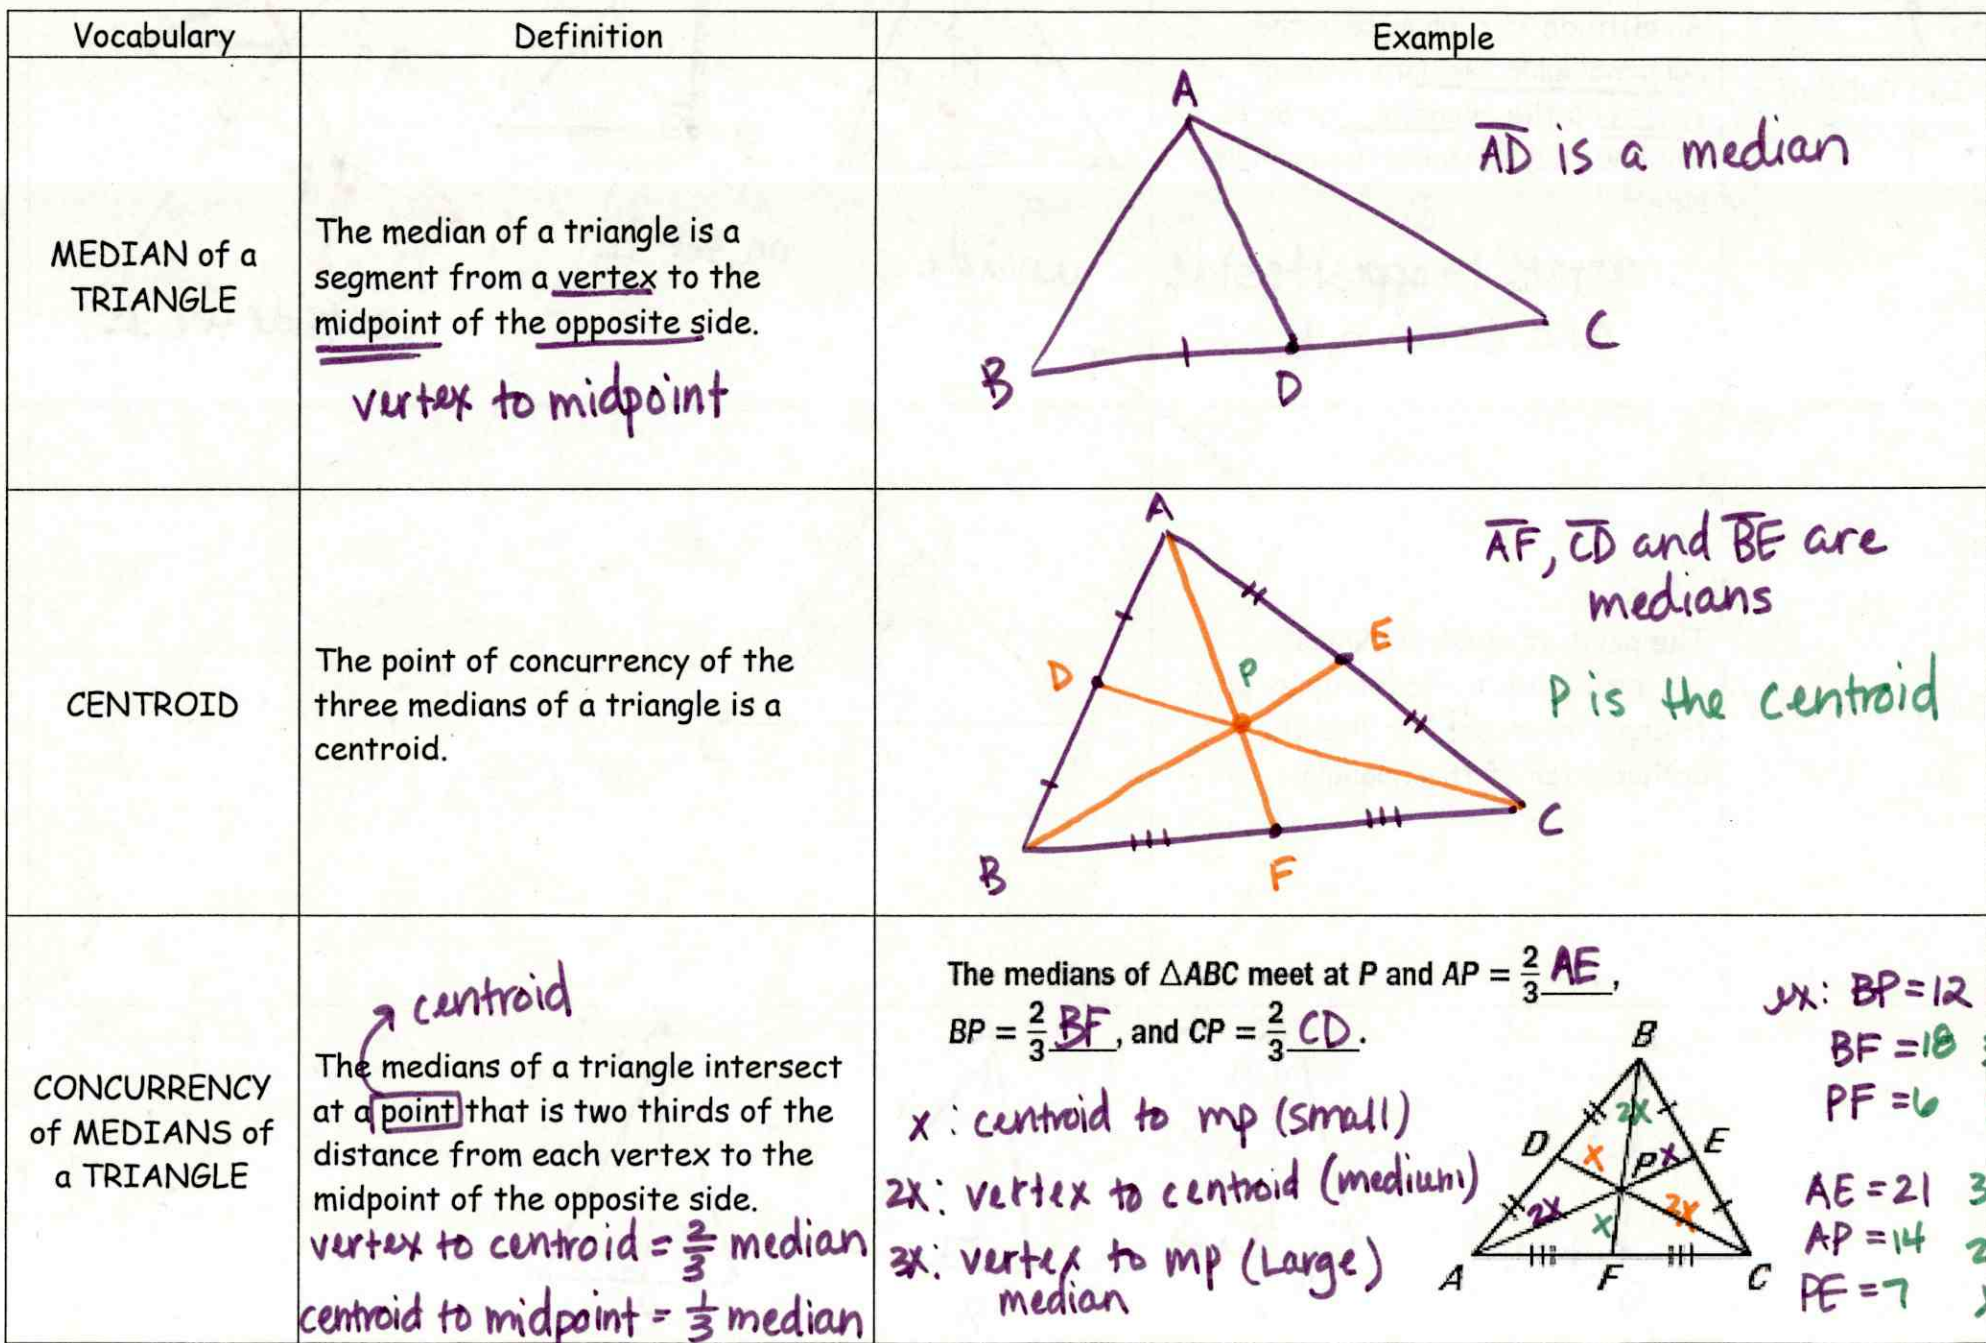 Vocabulary
Definition
Example
MEDIAN of a
TRIANGLE
The median of a triangle is a
segment from a vertex to the
midpoint of the opposite side.
vertex to midpoint
A
B
D
C
AD is a median
CENTROID
The point of concurrency of the
three medians of a triangle is a
centroid.
A
D
P
E
B
F
C
AF, CD and BE are
medians
P is the centroid
CONCURRENCY
of MEDIANS of
a TRIANGLE
centroid
The medians of a triangle intersect
at a point that is two thirds of the
distance from each vertex to the
midpoint of the opposite side.
vertex to centroid = 2/3 median
centroid to midpoint = 1/3 median
The medians of △ABC meet at P and AP = 2/3 AE,
BP = 2/3 BF, and CP = 2/3 CD.
x: centroid to mp (small)
2x: vertex to centroid (medium)
3x: vertex to mp (Large)
median
B
2x
D
x
P
x
E
2x
x
2x
A
F
C
ex: BP=12
BF=18
PF=6
AE=21 3
AP=14 2
PE=7